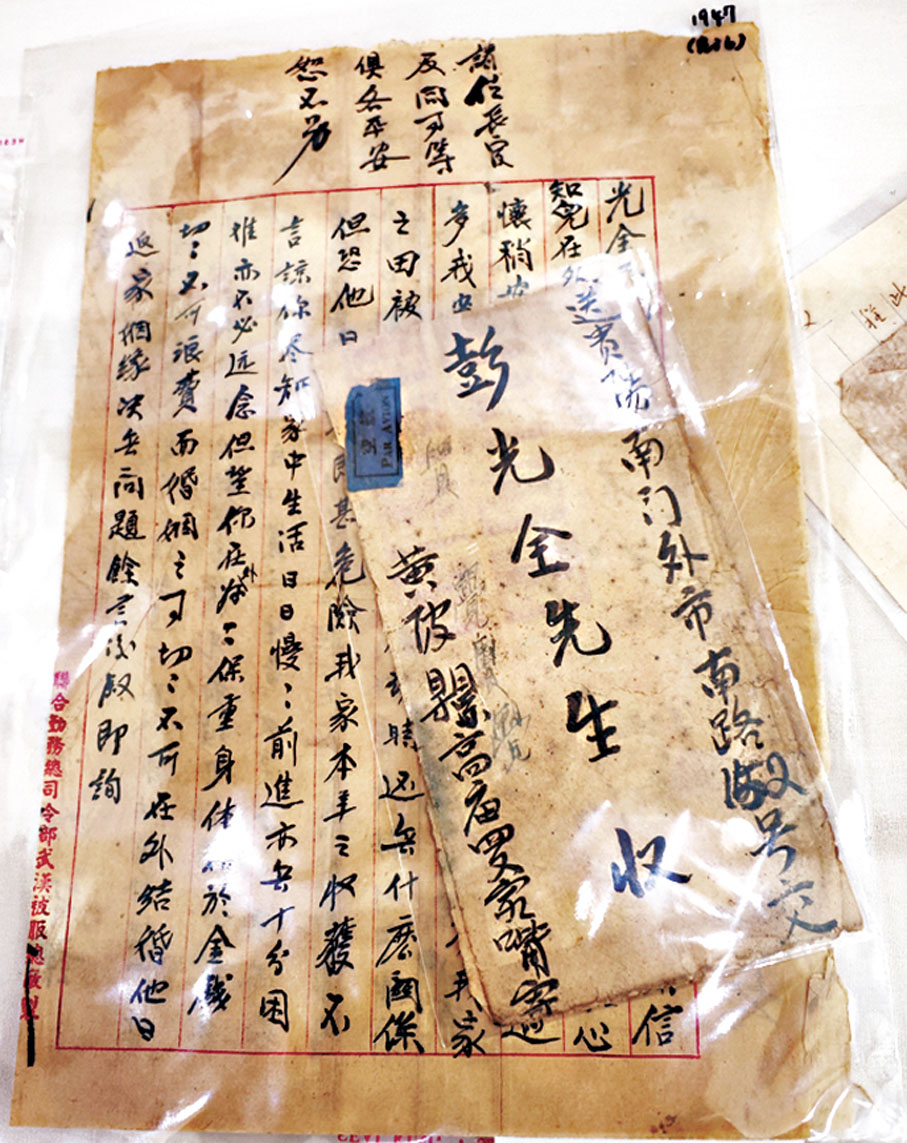 1947
諸位長官
及同事等
俱各平安
恕不另
光全 信
知兒在外 心
懷稍安
多我 我家
之田被 時远無什麽関係
但恐他日 甚危險我家本年之收穫不
言諒你尽知家中生活日日慢〻前進亦無十分困
难亦不必远念但望你在外 〻保重身体 於金錢
切〻不可浪費而婚姻之事切〻不可在外結婚他日
返家姻缘决無问題餘言後敍即詢
聯合勤務總司令部武漢被服總廠製
送貴陽南门外市南路 号交
彭光全先生收
航空
PAR AVION
黄陂縣高庙 家嘴寄